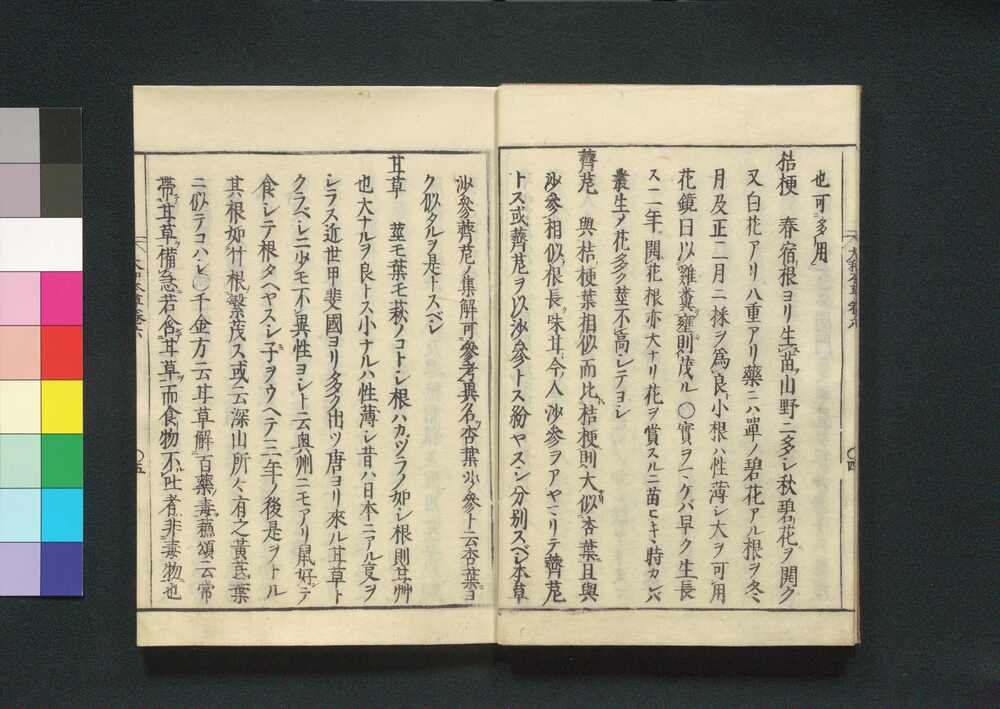 也可多用
桔梗 春宿根ヨリ生苗山野ニ多シ秋碧花ヲ開ク
又白花アリ八重アリ藥ニハ單ノ碧花アル根ヲ冬
月及正二月ニ採ヲ為良小根ハ性薄シ大ヲ可用
花鏡曰以雞糞壅則茂ル〇實ヲマケバ早ク生長
ス二年開花根亦大ナリ花ヲ賞スルニ苗ヒキヽ時カレバ
叢生ノ花多ク莖不高シテヨシ
薺苨 與桔梗葉相似而比桔梗則大似杏葉且與
沙參相似根長味甘今人沙參ヲアヤマリテ薺苨
トス或薺苨ヲ以沙參トス紛ヤスシ分別スベシ本草
沙參薺苨ノ集解可參考異名杏葉沙參ト云杏葉ヨ
ク似タルヲ是トスベシ
甘草 莖モ葉モ萩ノコトシ根ハカヅラノ如シ根則甘艸
也大ナルヲ良トス小ナルハ性薄シ昔ハ日本ニアル叓ヲ
シラス近世甲斐國ヨリ多ク出ツ唐ヨリ來ル甘草ト
クラベシニ少モ不異性ヨシト云奥州ニモアリ鼠好テ
食シテ根タヘヤスシ子ヲウヘテ三年ノ後是ヲトル
其根如竹根繁茂ス或云深山所々有之黄芪葉
ニ似テコハシ〇千金方云甘草解百藥毒蘓頌云常
帶甘草備急若食甘草而食物不吐者非毒物也
大和本草卷六
〇四
〇五